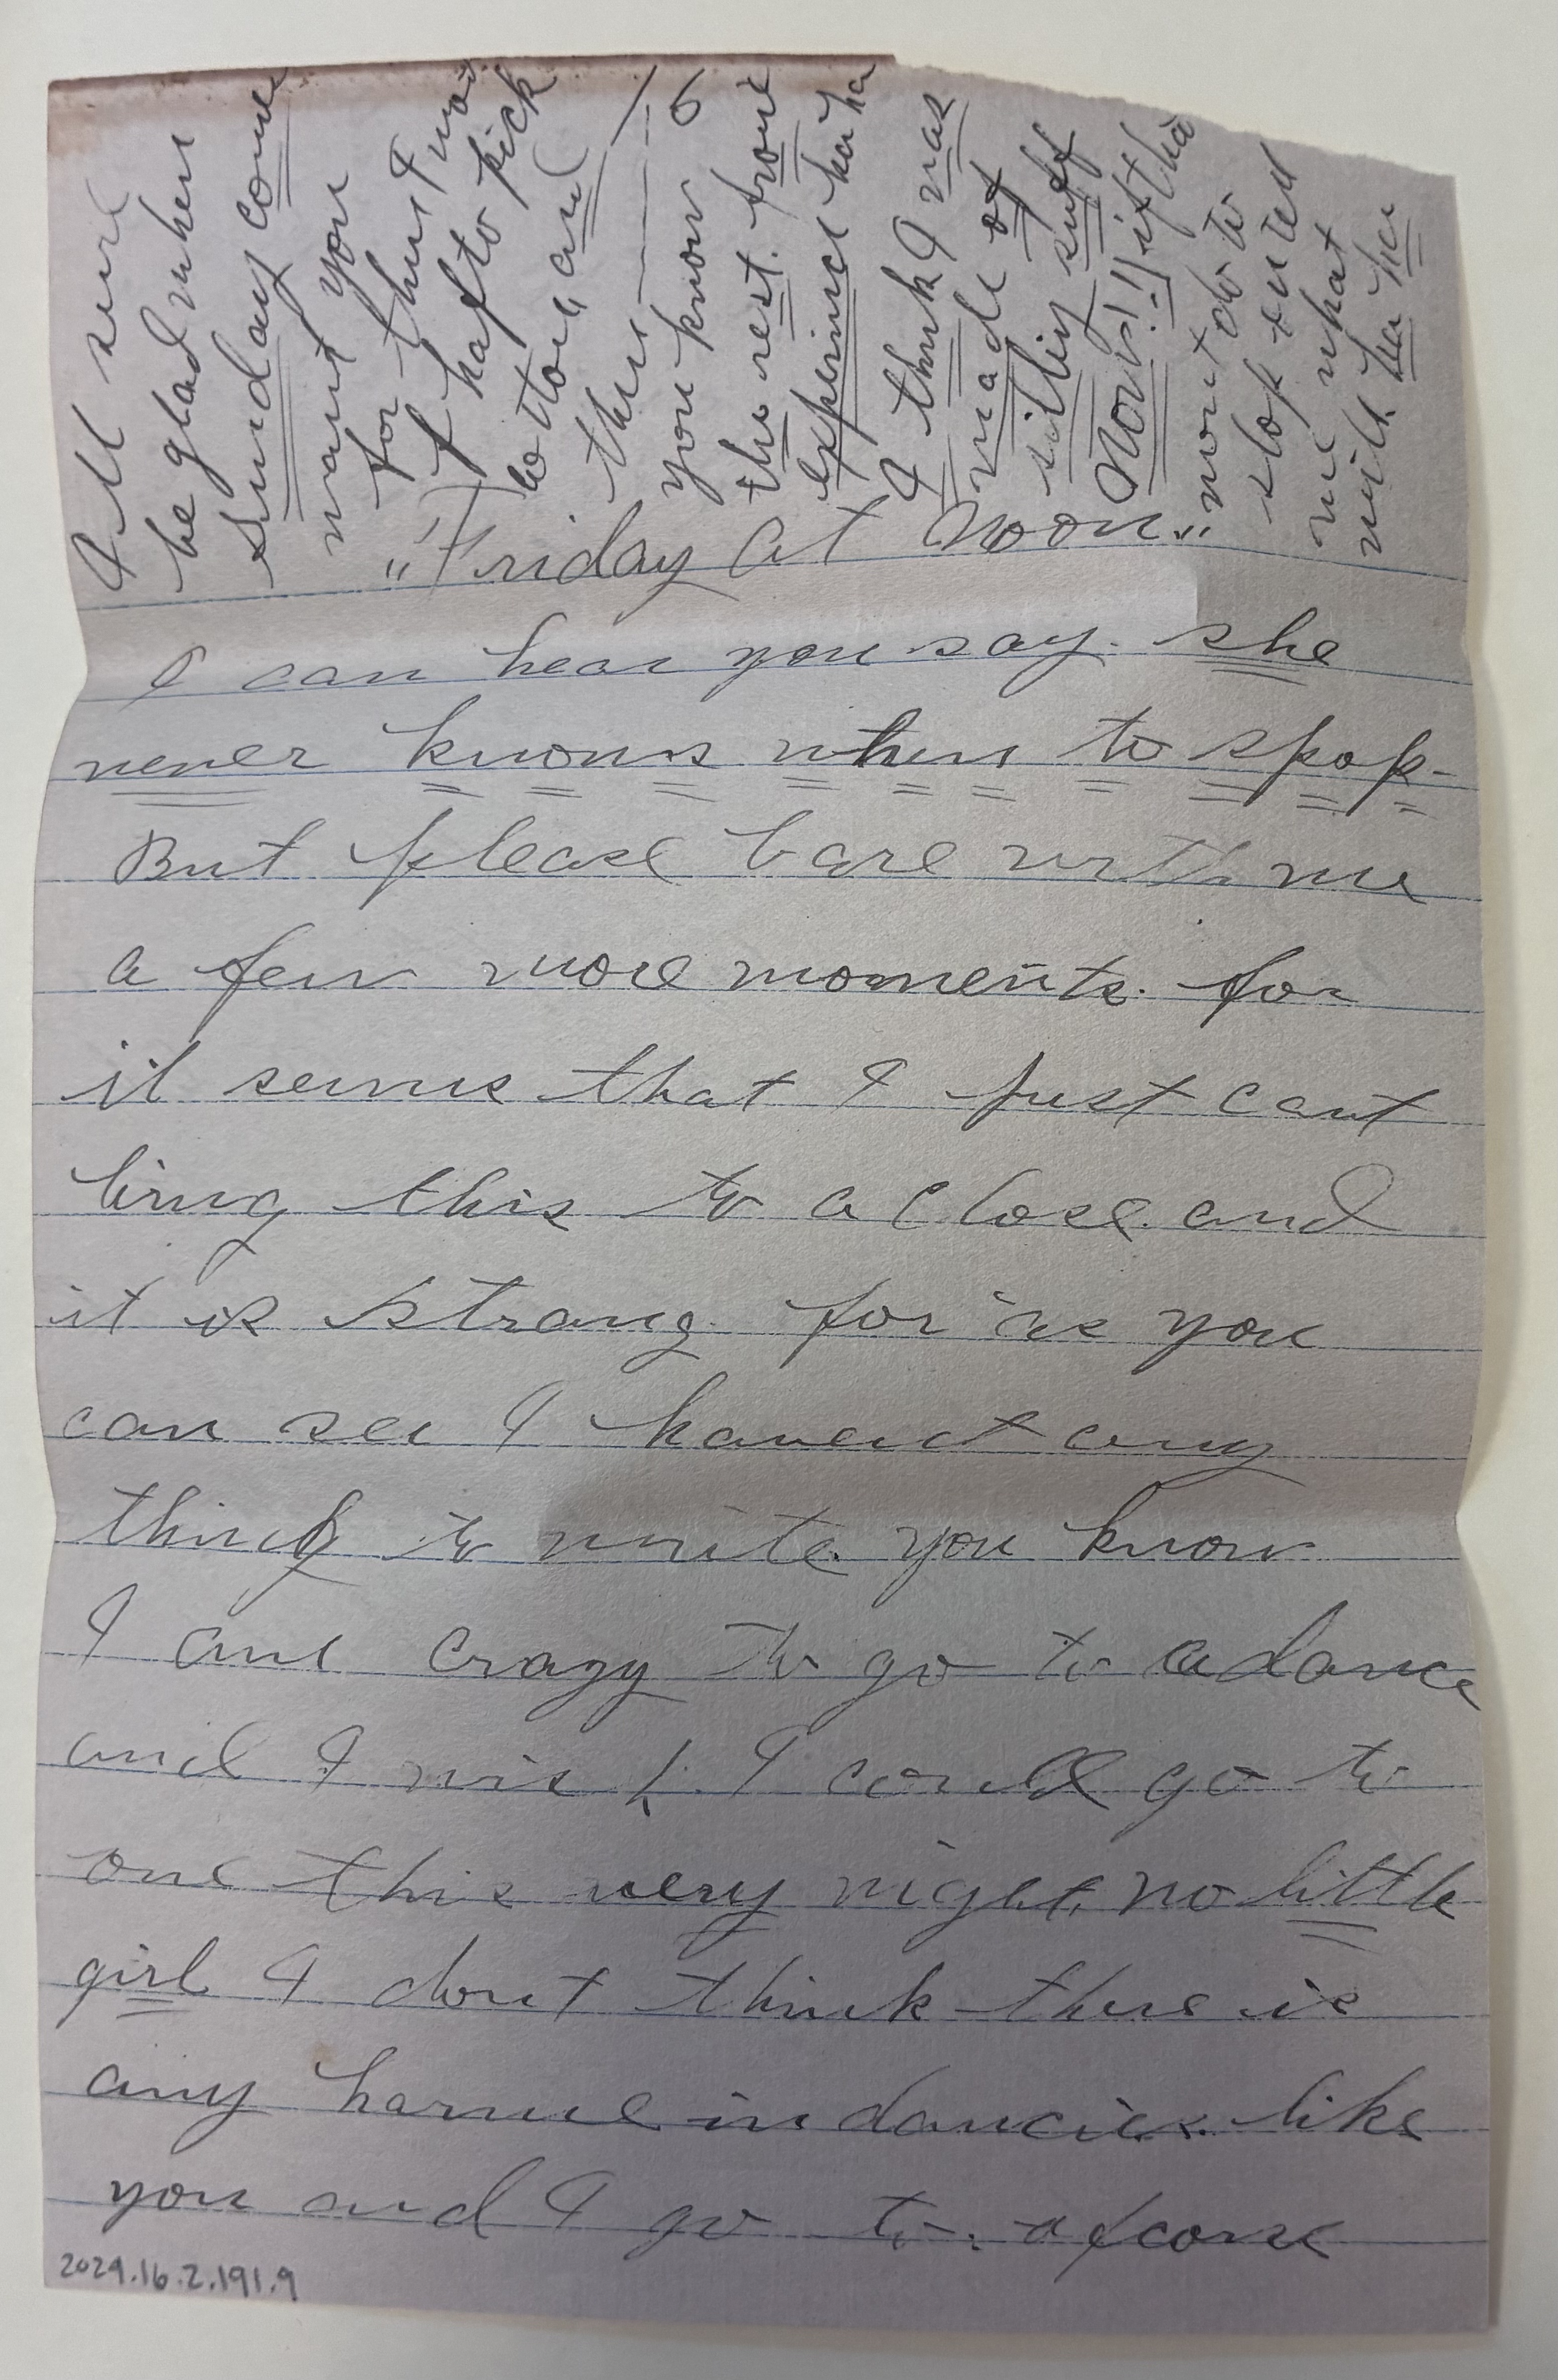 I'll sure
be glad when
Sunday come
want you
for then I won
t hafto pick
cotton, and
then — — — o
you know
the rest. from
experince ha ha
I think I was
made of
silling suff
Now!! if tha
wont do to
stop tell
me what
will. ha ha
"Friday at Noon"
I can hear you say. she
never knows when to spop-
But please bare with me
a few more moments. for
it seems that I just cant
bring this to a close. and
it is strang. for as you
can see I havent any
thing to write. you know
I am crazy to go to a dance
and I wish I could go to
one this very night, no little
girl I dont think there is
any harme in dancies. like
you and I go to. of corse
2024.16.2.191.9